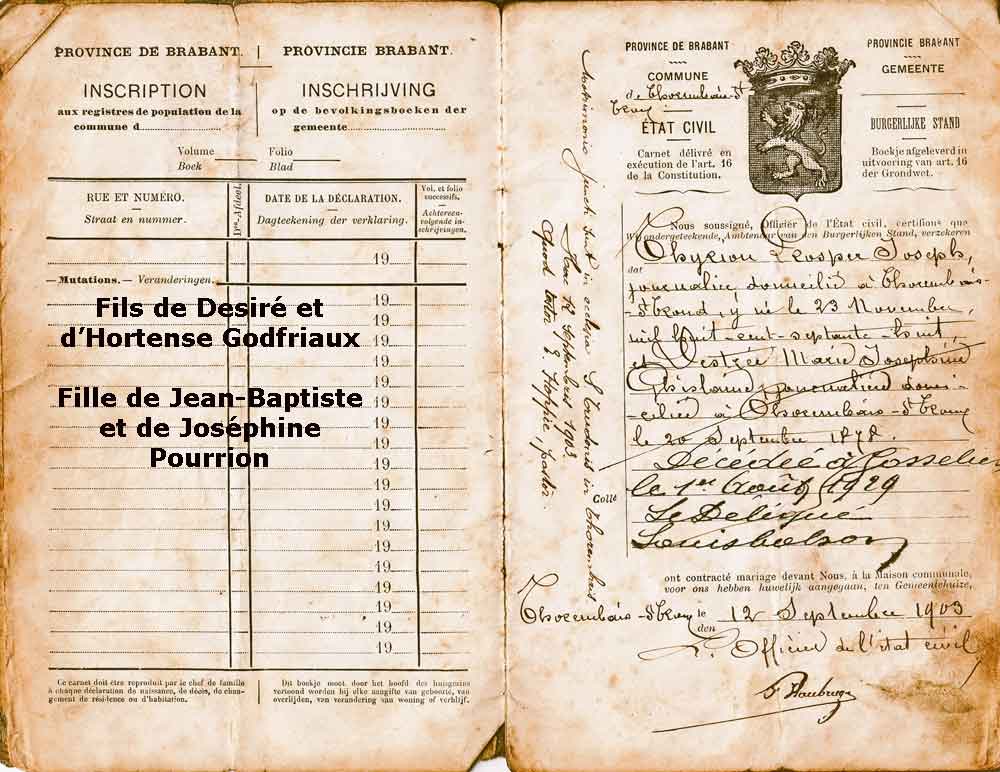 PROVINCE DE BRABANT.
PROVINCIE BRABANT.
INSCRIPTION
aux registres de population de la
commune d
INSCHRIJVING
op de bevolkingsboeken der
gemeente
Volume
Boek
Folio
Blad
RUE ET NUMÉRO.
Straat en nummer.
DATE DE LA DÉCLARATION.
Dagteekening der verklaring.
Vol. et folio
successifs.
Achtereen-
volgende in-
schrijvingen.
19
Mutations. — Veranderingen.
19
19
Fils de Desiré et
d’Hortense Godfriaux
19
19
19
Fille de Jean-Baptiste
et de Joséphine
Pourrion
19
19
19
19
19
19
19
19
19
19
19
19
Ce carnet doit être reproduit par le chef de famille
à chaque déclaration de naissance, de décès, de chan-
gement de résidence ou d'habitation.
Dit boekje moet door het hoofd des huisgezins
vertoond worden bij elke aangifte van geboorte, van
overlijden, van verandering van woning of verblijf.
PROVINCE DE BRABANT
COMMUNE
de Thorembais-St
Trond
ÉTAT CIVIL
Carnet délivré en
exécution de l'art. 16
de la Constitution.
PROVINCIE BRABANT
GEMEENTE
BURGERLIJKE STAND
Boekje afgeleverd in
uitvoering van art. 16
der Grondwet.
Nous soussigné, Officier de l'État civil, certifions que
Wij ondergeteekende, Ambtenaar van den Burgerlijken Stand, verzekeren
dat
Prosper Joseph,
journalier domicilié à Thorembais-
St Trond, y né le 23 Novembre,
mil huit-cent-septante-huit
et Marie Josephine
Ghislaine journalière domi-
-ciliée à Thorembais-St Trond
le 20 Septembre 1878.
Décédée à Gosselies
le 1er Août 1929
Le Délégué
Collé
Matrimonio juncti sunt in ecclesia in Thorembais
hac 12 Septembris 1903
quod testor
ont contracté mariage devant Nous, à la Maison communale,
voor ons hebben huwelijk aangegaan, ten Gemeentehuize,
Thorembais-St Trond le
den
12 Septembre 1903
L'Officier de l'état civil